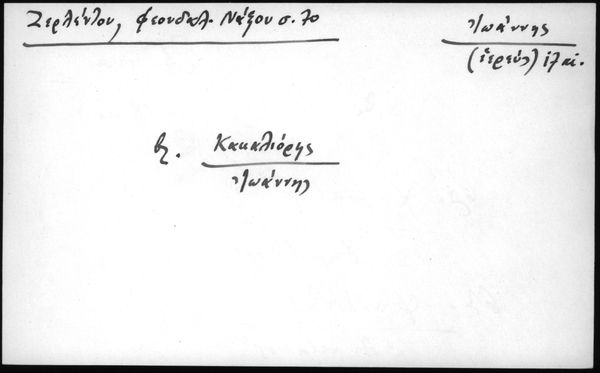 Ζερλέντου, φεουδαλ. Νάξου σ. 70
Ἰωάννης
(ἱερεύς) ιζ αἰ.
βλ. Κακαλιόρης
Ἰωάννης